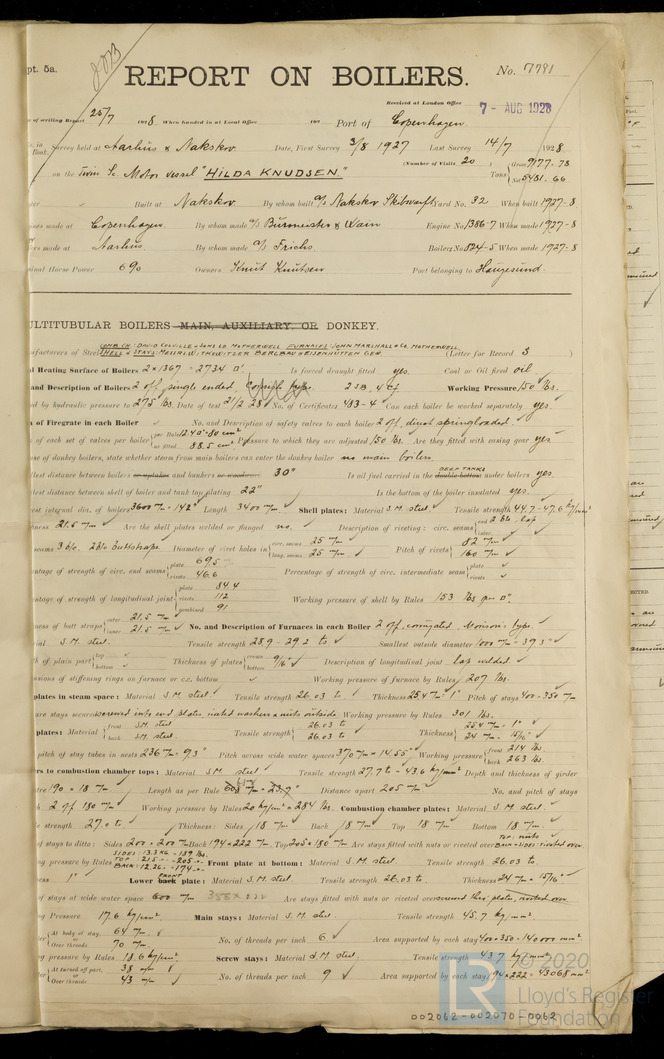 pt. 5a.
REPORT ON BOILERS.
No. 7791
Received at London Office 7 - AUG 1928
of writing Report 25/7 1928. When handed in at Local Office 192 Port of Copenhagen
Survey held at Aarhus & Nakskov Date, First Survey 3/8 1927 Last Survey 14/7 1928
(Number of Visits 20)
on the Twin Sc. Motor vessel "HILDA KNUDSEN." Tons Gross 9177.78 Net 5451.66
Built at Nakskov By whom built A/S Nakskov Skibsværft Yard No. 32 When built 1927-8
made at Copenhagen By whom made A/S Burmeister & Wain Engine No 1386-7 When made 1927-8
made at Aarhus. By whom made A/S Frichs Boiler No 524-5 When made 1927-8
Horse Power 690 Owners Knut Knutsen Port belonging to Haugesund.
ULTITUBULAR BOILERS MAIN, AUXILIARY, OR DONKEY.
COMB. CH: DAVID COLVILLE & SONS LD MOTHERWELL FURNACES: JOHN MARSHALL & CO. MOTHERWELL
ufacturers of Steel SHELL & STAYS: (Letter for Record S )
Heating Surface of Boilers 2 x 1367 = 2734 □'. Is forced draught fitted yes. Coal or Oil fired oil
and Description of Boilers 2 off, single ended, 2 SB. Working Pressure 150 lbs.
by hydraulic pressure to 275 lbs. Date of test 21/2 28 No. of Certificates 483-4 Can each boiler be worked separately yes.
of Firegrate in each Boiler No. and Description of safety valves to each boiler 2 off, direct springloaded.
of each set of valves per boiler per Rule as fitted 88.5 cm² Pressure to which they are adjusted 150 lbs. Are they fitted with easing gear yes
of donkey boilers, state whether steam from main boilers can enter the donkey boiler no main boilers
distance between boilers or uptakes and bunkers or woodwork 30" Is oil fuel carried in the double bottom DEEP TANKS under boilers yes
distance between shell of boiler and tank top plating 22" Is the bottom of the boiler insulated yes.
internal dia. of boilers 3600 m/m = 142" Length 3400 m/m Shell plates: Material S.M. steel Tensile strength 44.7-47.6 kg/mm²
ness 21.5 m/m Are the shell plates welded or flanged no. Description of riveting: circ. seams end 2 Riv. lap
seams 3 Riv. 2Rib buttstraps. Diameter of rivet holes in circ. seams 25 m/m long. seams 25 m/m Pitch of rivets 82 m/m 160 m/m
entage of strength of circ. end seams plate 69.5 rivets 46.6 Percentage of strength of circ. intermediate seam plate rivets
entage of strength of longitudinal joint plate 84.4 rivets 112 combined 91 Working pressure of shell by Rules 153 lbs per □".
of butt straps outer 21.5 m/m inner 21.5 m/m No. and Description of Furnaces in each Boiler 2 off, corrugated, Morison's type.
S.M. steel. Tensile strength 28.9-29.2 to Smallest outside diameter 1000 m/m = 39.3"
of plain part top bottom Thickness of plates crown bottom 9/16" Description of longitudinal joint lap welded
ensions of stiffening rings on furnace or c.c. bottom Working pressure of furnace by Rules 207 lbs.
plates in steam space: Material S.M. steel. Tensile strength 26.03 to Thickness 25.4 m/m = 1" Pitch of stays 400-350 m/m
are stays secured screwed into end plates, riveted washers & nuts outside Working pressure by Rules 301 lbs.
plates: Material front S.M. steel back S.M. steel Tensile strength 26.03 to 26.03 to Thickness 25.4 m/m - 1" 24 m/m - 15/16"
pitch of stay tubes in nests 236 m/m = 9.3" Pitch across wide water spaces 370 m/m = 14.55" Working pressure front 214 lbs. back 263 lbs.
to combustion chamber tops: Material S.M. steel Tensile strength 27.7 to - 43.6 kg/mm² Depth and thickness of girder
190 x 18 m/m Length as per Rule Distance apart 205 m/m No. and pitch of stays
2 off 180 m/m Working pressure by Rules 20 kg/cm² = 284 lbs. Combustion chamber plates: Material S.M. steel.
strength 27.0 to Thickness: Sides 18 m/m Back 18 m/m Top 18 m/m Bottom 18 m/m
of stays to ditto: Sides 200 x 200 m/m Back 194 x 222 m/m Top 205 x 180 m/m Are stays fitted with nuts or riveted over TOP: nuts BACK & SIDES: riveted over
SIDES: 13.3 KG - 189 lbs.
pressure by Rules TOP: 21.5 -- 205 -- BACK: 12.26 -- 174 -- Front plate at bottom: Material S.M. steel. Tensile strength 26.03 to.
1" Lower back FRONT plate: Material S.M. steel. Tensile strength 26.03 to. Thickness 24 m/m - 15/16"
of stays at wide water space Are stays fitted with nuts or riveted over screwed thro' plates, riveted over.
Pressure 17.6 kg/cm² Main stays: Material S.M. steel. Tensile strength 45.7 kg/mm².
At body of stay, or Over threads 64 m/m 70 m/m No. of threads per inch 6 Area supported by each stay 400 x 350 = 140000 mm².
pressure by Rules 18.6 kg/cm² Screw stays: Material S.M. steel. Tensile strength 43.7 kg/mm²
At turned off part, or Over threads 38 m/m 43 m/m No. of threads per inch 9 Area supported by each stay 194 x 222 = 43068 mm²
© 2020
Lloyd's Register
Foundation
002062-002070-0062